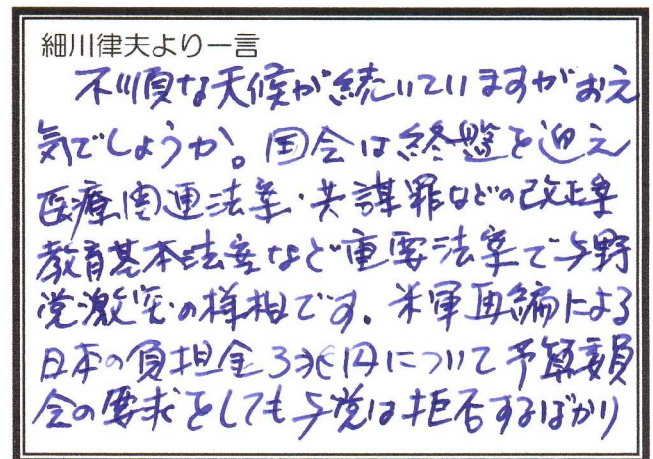 細川律夫より一言
不順な天候が続いていますがお元
気でしょうか。国会は終盤を迎え
医療関連法案・共謀罪などの改正案
教育基本法案など重要法案で与野
党激突の様相です。米軍再編による
日本の負担金3兆円について予算委員
会の要求をしても与党は拒否するばかり